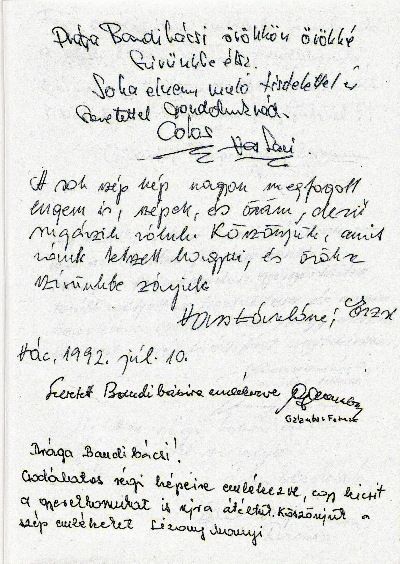 Drága Bandi bácsi örökkön örökké
szívünkbe élsz.
Soha el nem muló tisztelettel és
szeretettel gondolunk rád.
A sok szép kép nagyon megfogott
engem is, szépek, és
sugárzik rólunk. Köszönjük, amit
ránk tetszett hagyni, és örökre
szívünkbe zárjuk
Vác, 1992. júl. 10.
Szeretett Bandi bácsira emlékezve
Drága Bandi bácsi!
Csodálatos régi képeire emlékezve, egy kicsit
a gyerekkorunkat is ujra átéltük. Köszönjük a
szép emlékeket